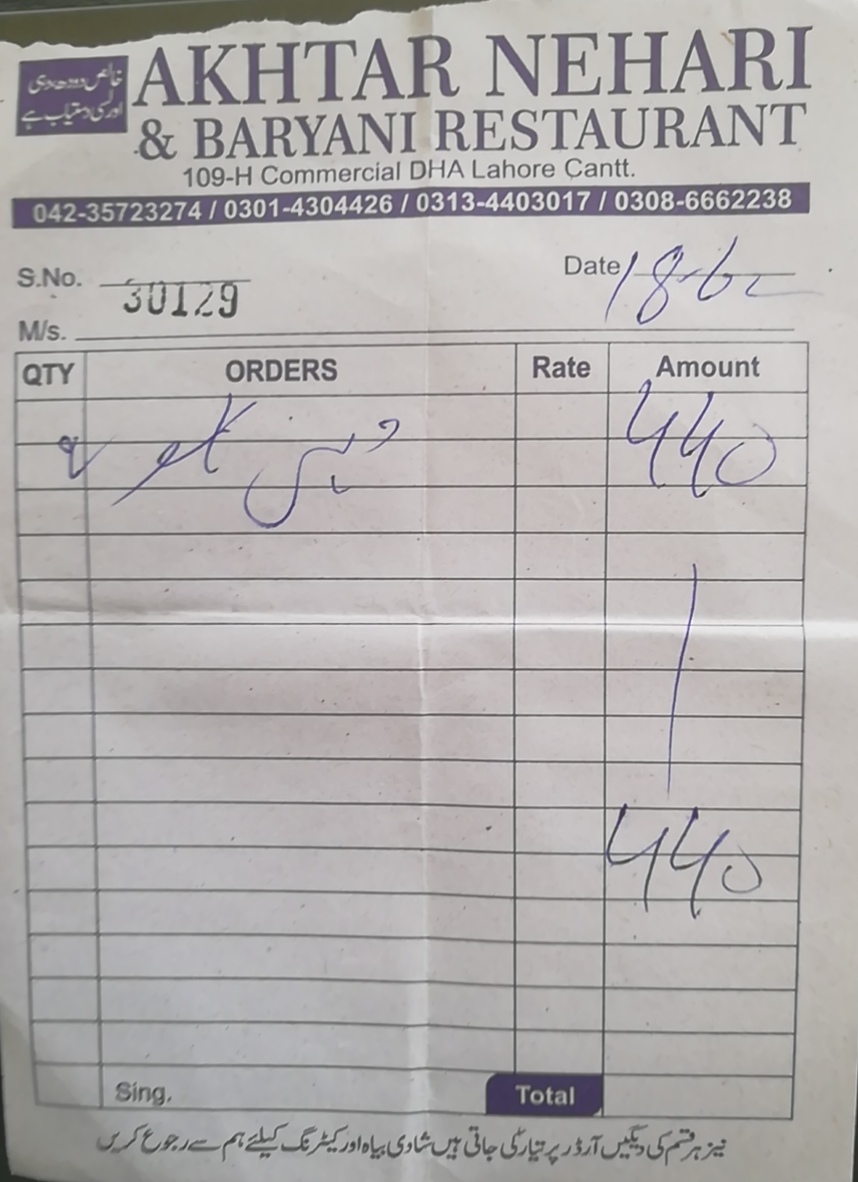 خالص دودھ دہی
اور لسی دستیاب ہے
AKHTAR NEHARI
& BARYANI RESTAURANT
109-H Commercial DHA Lahore Cantt.
042-35723274 / 0301-4304426 / 0313-4403017 / 0308-6662238
S.No. 30129
Date 18-6
M/s.
QTY ORDERS Rate Amount
440
440
Sing. Total
نیز ہر قسم کی دیگیں آرڈر پر تیار کی جاتی ہیں شادی بیاہ اور کیٹرنگ کیلئے ہم سے رجوع کریں